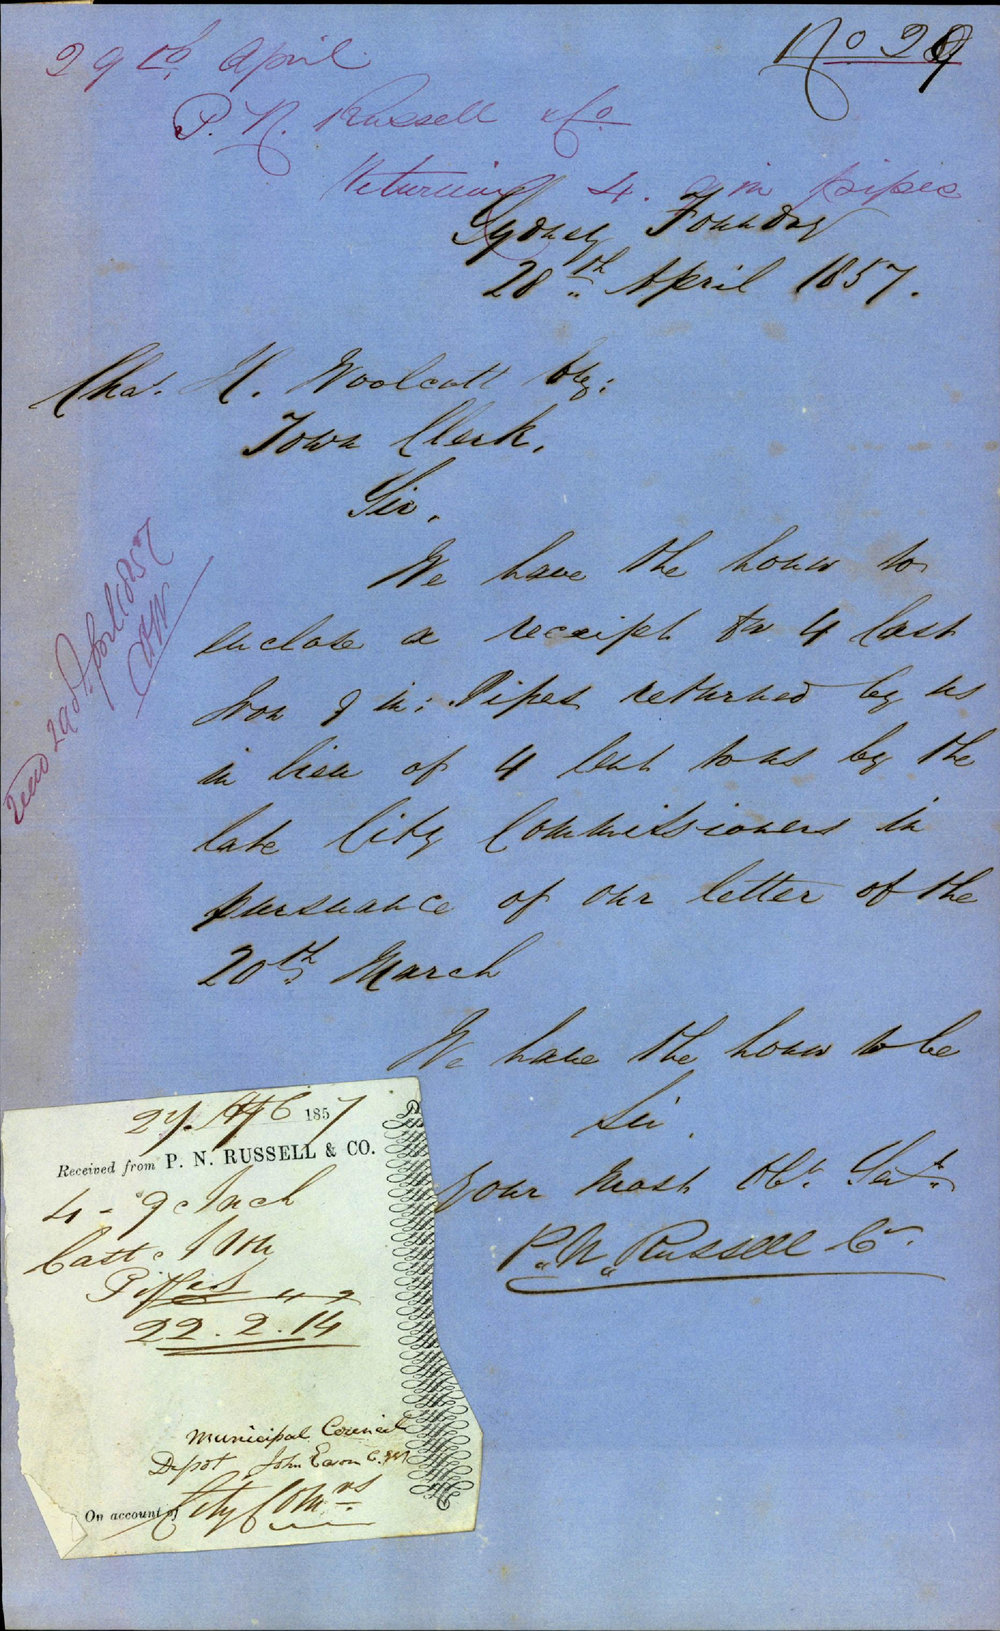 No 29
29th April
P. N. Russell & Co
Returning 4. 9 in pipes
Sydney Foundry
28th April 1857.
Chas. H. Woolcott Esq:
Town Clerk,
Sir,
We have the honor to
enclose a receipt for 4 Cast
Iron 9 in: Pipes returned by us
in lieu of 4 lent to us by the
late City Commissioners in
pursuance of our letter of the
20th March
We have the honor to be
Sir
Your Most Obt. Servts.
P. N. Russell Co.
29 April 1857
CHW
27. 1857
Received from P. N. RUSSELL & CO.
4 - 9 Inch
Cast Iron
Pipes
22.2.14
Municipal Council
Depot John
On account of City Comrs